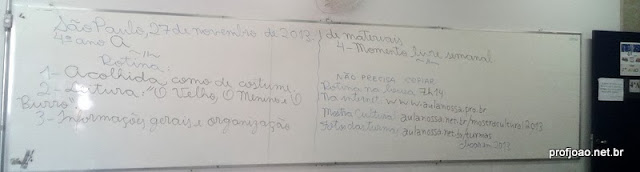 São Paulo, 27 de novembro de 2013.
4º ano A
Rotina:
1- Acolhida como de costume
2- Leitura: "O Velho, O Menino e O
Burro"
3- Informações gerais e organização
de materiais
4- Momento livre semanal
NÃO PRECISA COPIAR
Rotina na lousa 7h14
Na internet: www.aulanossa.pro.br
Mostra Cultural: aulanossa.net.br/mostracultural2013
aulanossa.net.br/turmas
profjoao.net.br